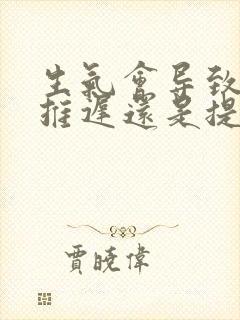 生氣會导致
推遲還是提
賈曉偉